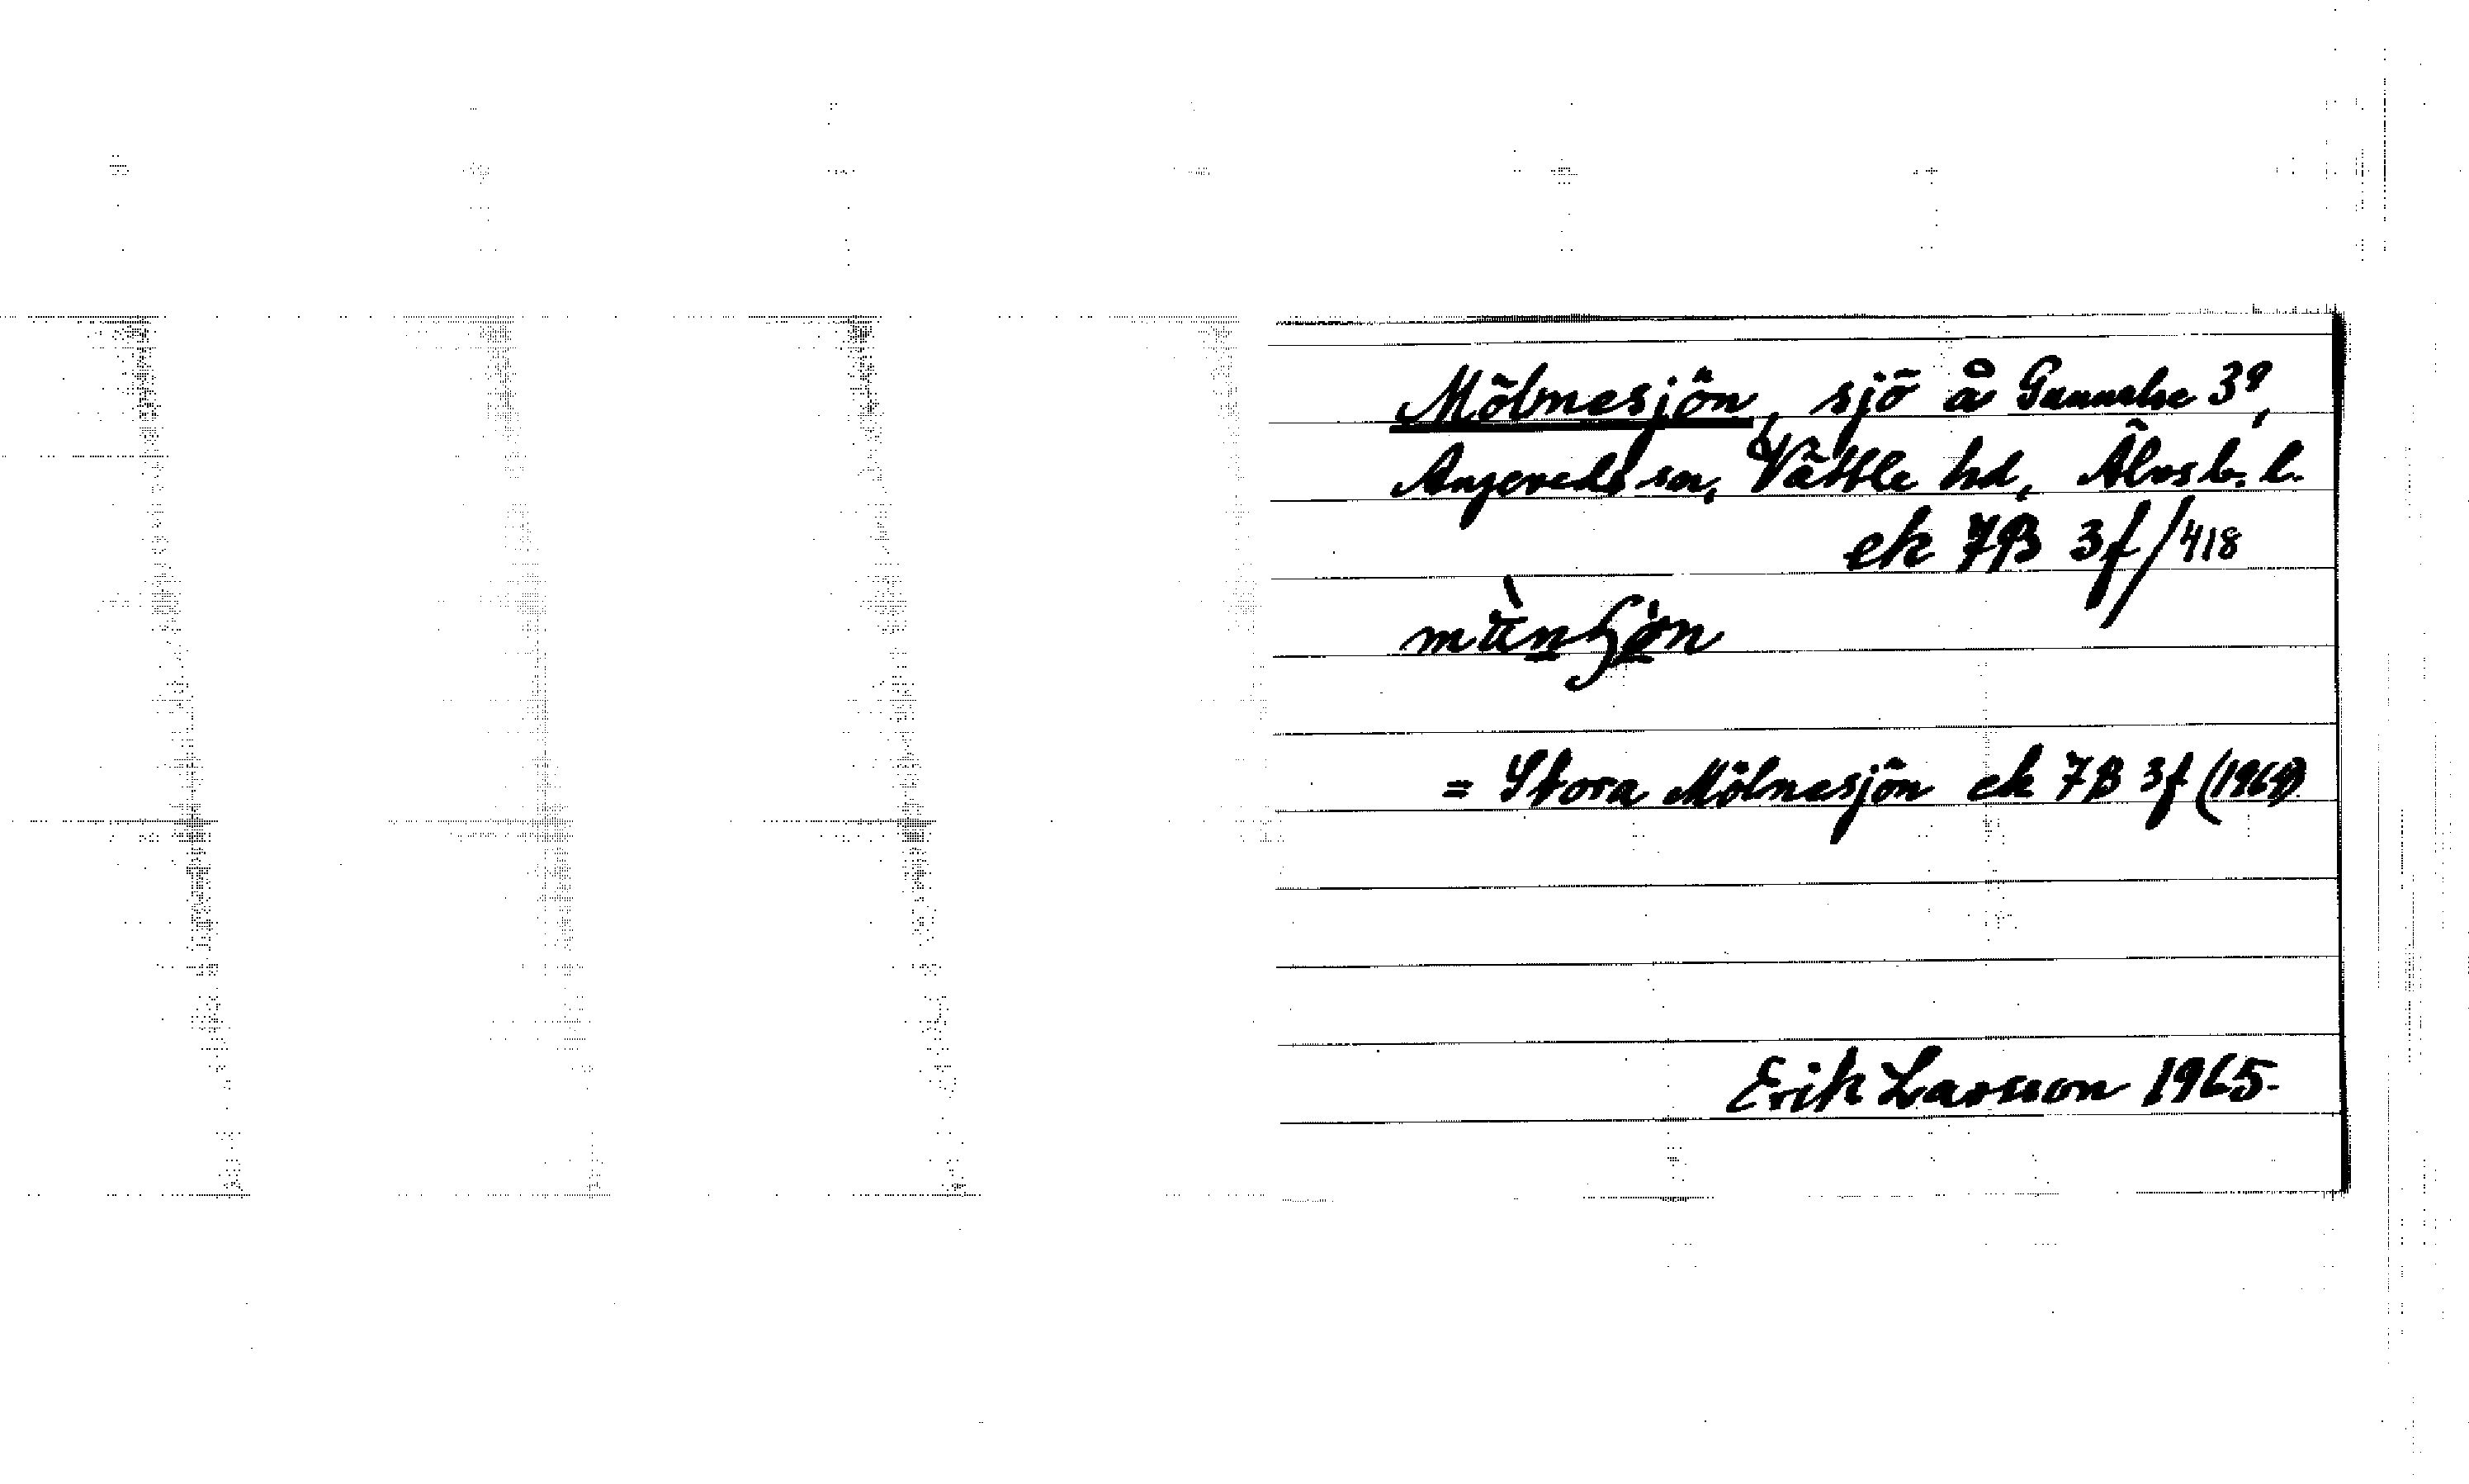 Mölnesjön, sjö å Gunnelse 3⁹,
Angereds sn, Vättle hd, Älvsb. l.
ek 7B 3f/418
= Stora Mölnesjön ek 7B 3f (1961)
Erik Larsson 1965.